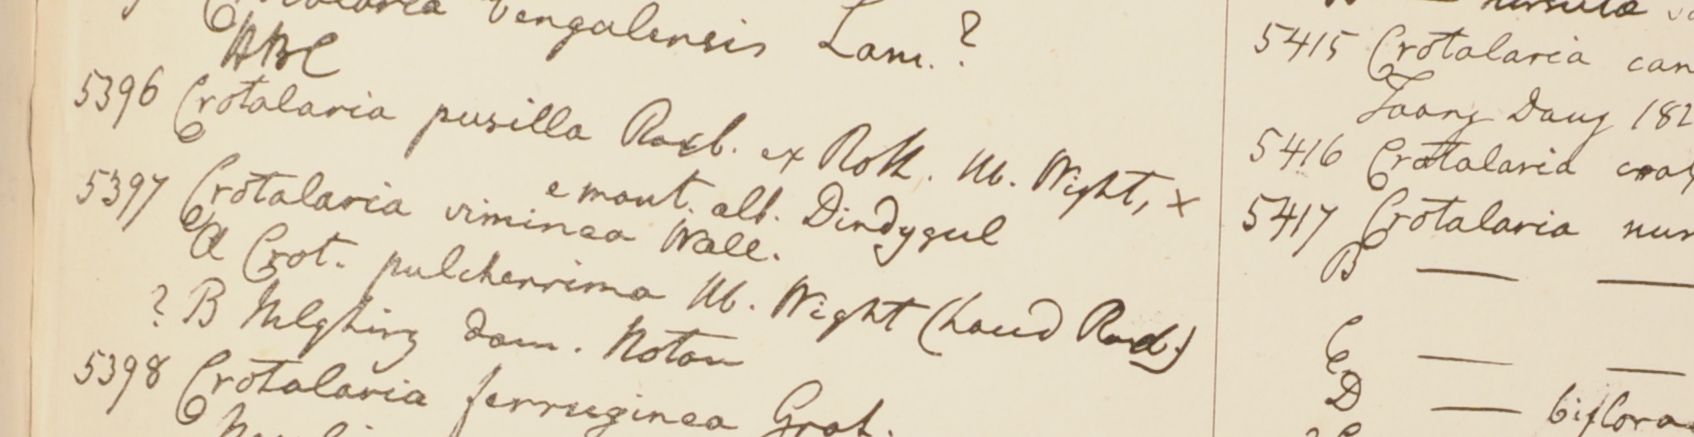 Crotalaria bengalensis Lam.?
ABC
5396 Crotalaria pusilla Roxb. ex Roth. Hb. Wight, x
e mont. alt. Dindygul
5397 Crotalaria viminea Wall.
A Crot. pulcherrima Hb. Wight (haud Roxb.)
? B Nilghiry dom. Noton
5398 Crotalaria ferruginea Grah.
hirsuta
5415 Crotalaria
Taong Daung 182
5416 Crotalaria
5417 Crotalaria
B — —
C — —
D — biflora